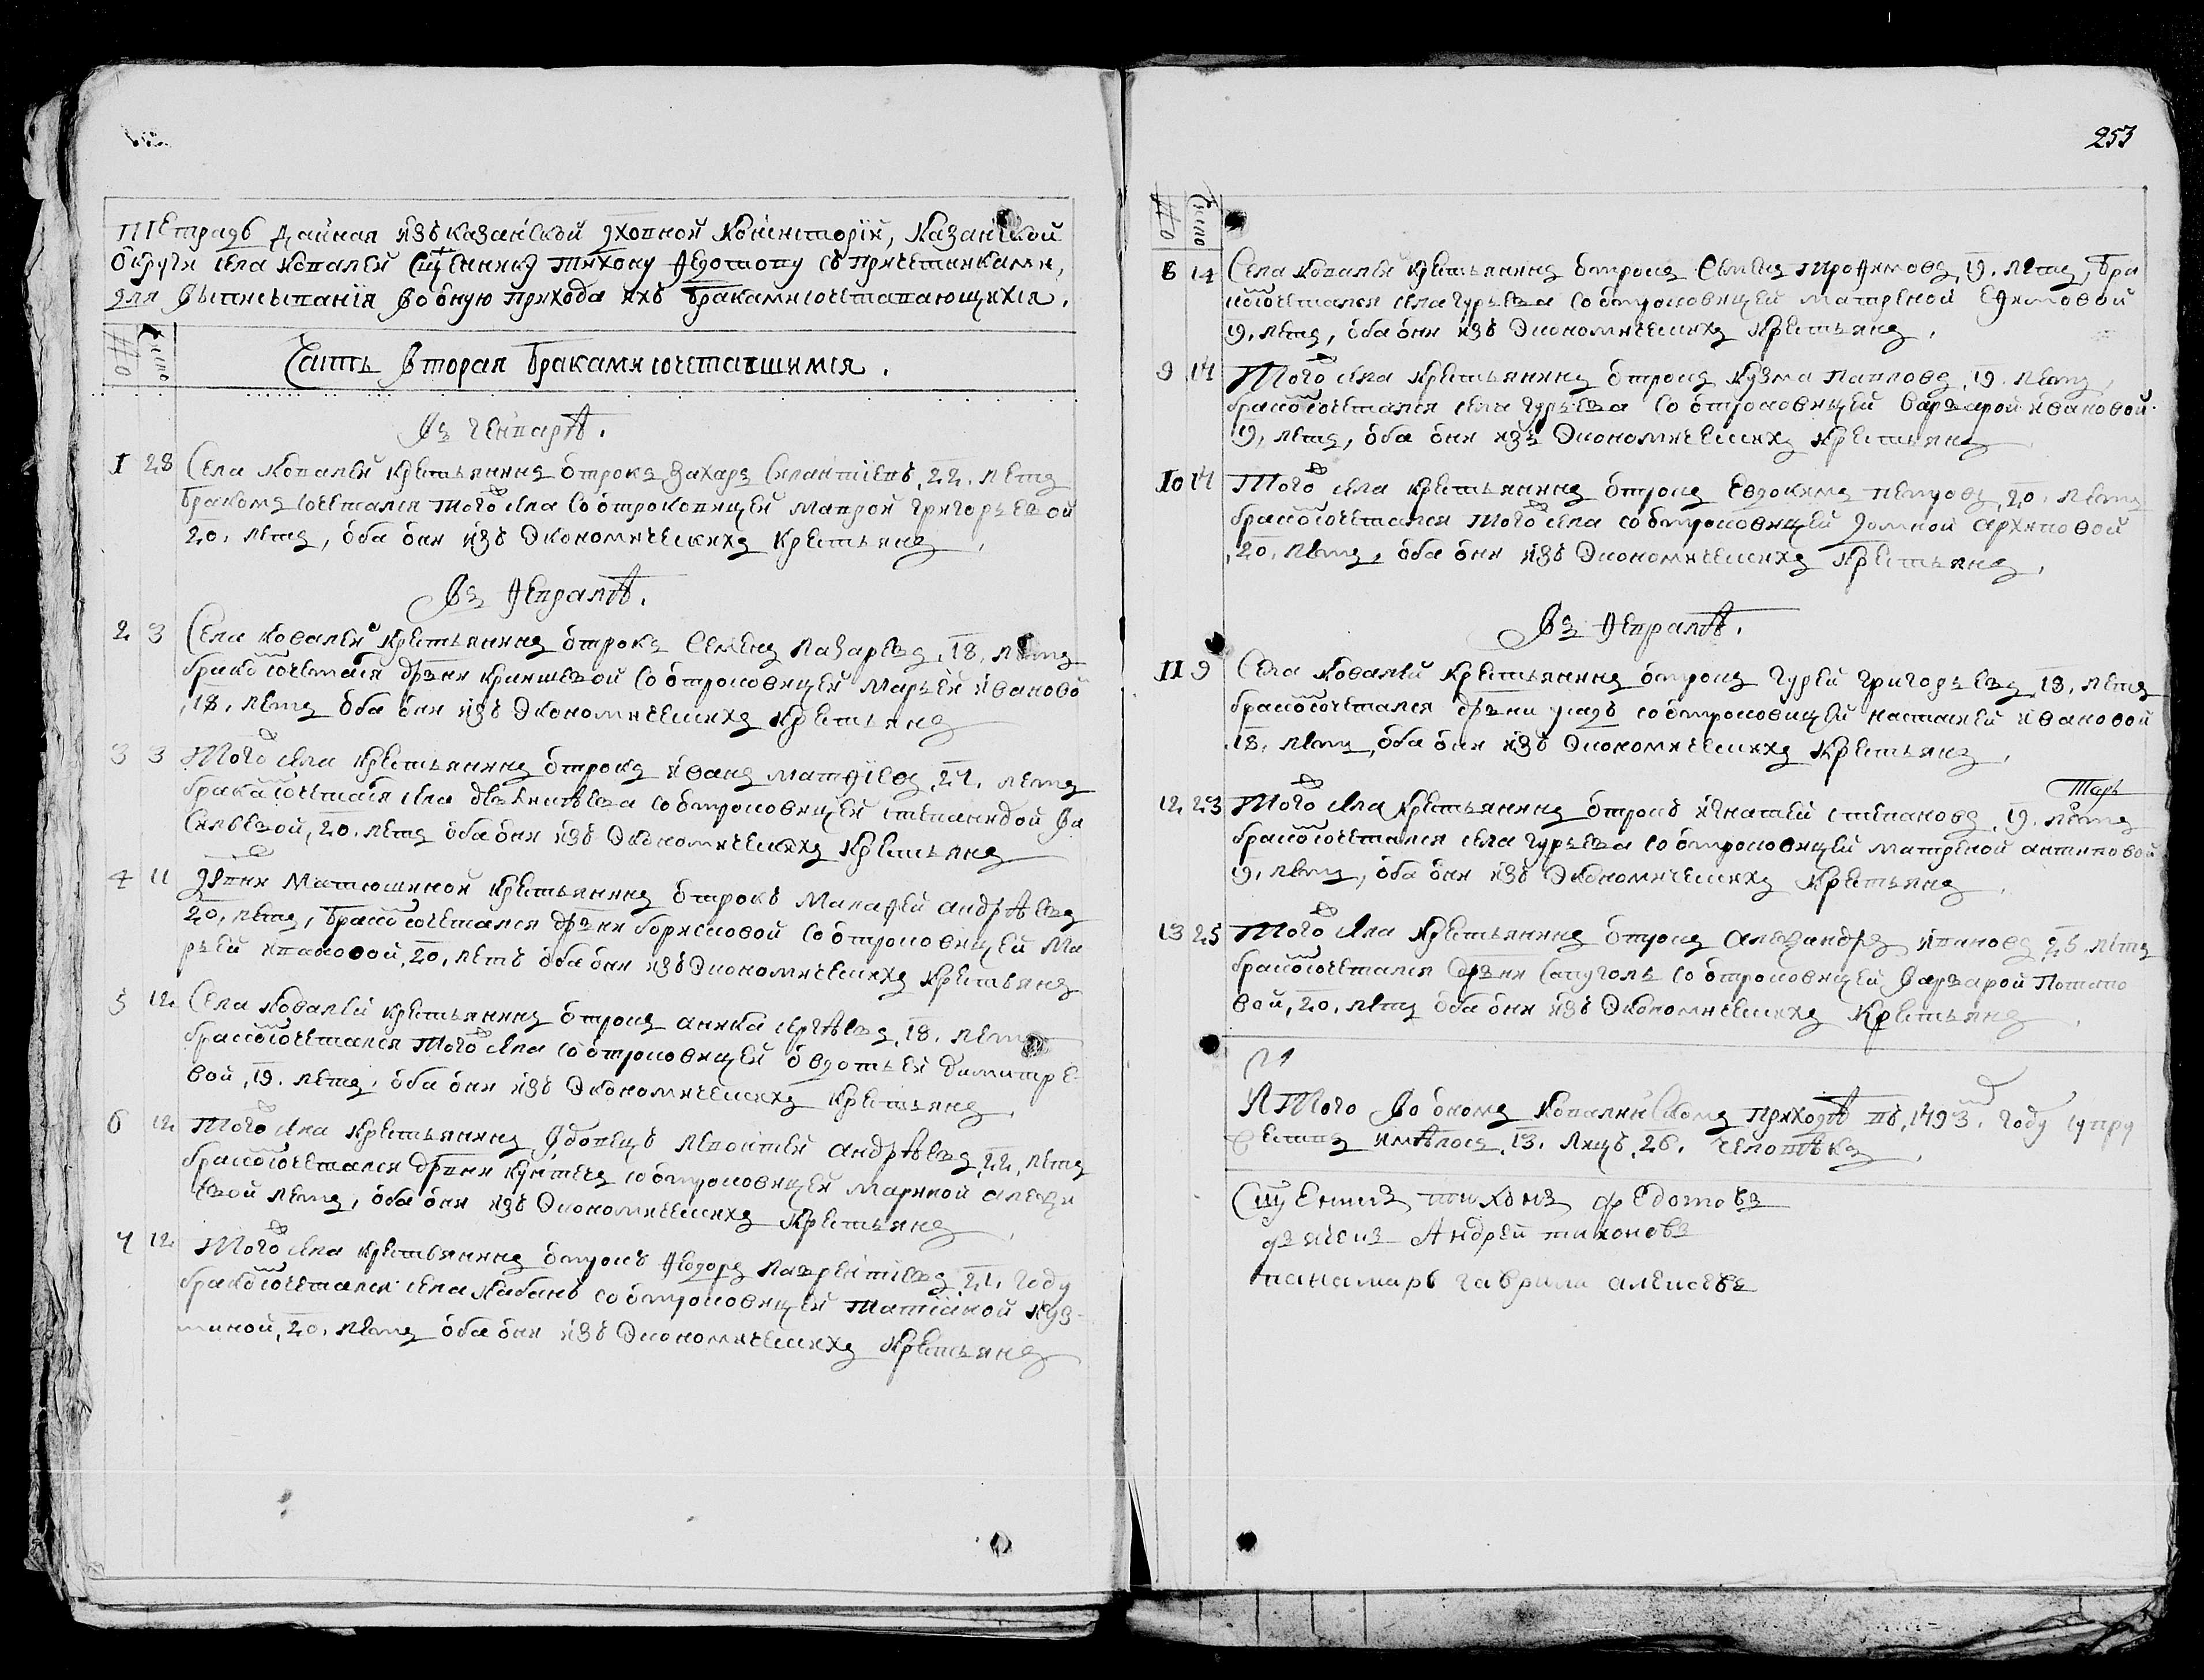 Тетрадь даиная изъ казанской дховной Консисторіи, Казанской
Округи села Ковалей Сщенику Тихону Ѳедотову съ причетниками,
для вытисыванія во оную прихода ихъ браками сочетавающихся.
№
Число
Часть вторая браками сочетавшимся.
Въ Генварѣ.
1 28 Села Ковалей крестьянинъ отрокъ Захаръ Силантіевъ, 22. летъ
бракомъ сочетался того села со отроковицей Маврой григорьевой
20. летъ, оба они изъ Экономическихъ крестьянъ.
Въ Ѳевралѣ.
2 3 Села Ковалей крестьянинъ отрокъ Семенъ Лазаревъ, 18. летъ
бракосочетался древни Криушевой со отроковицей Марьей Ивановой
18. летъ оба они изъ Экономическихъ крестьянъ
3 3 Того села крестьянинъ отрокъ Иванъ Матѳіевъ, 21. летъ
бракасочетася села со отроковицей степанидой Ва
сильевой, 20. летъ оба они изъ Экономическихъ крестьянъ
4 11 древни Матюшиной крестьянинъ отрокъ Макарей андрѣевъ
20. летъ, бракосочетался древни борисковой со отроковицей Ма
рьей ивановой, 20. летъ оба они изъ Экономическихъ крестьянъ
5 12 Села Ковалей крестьянинъ отрокъ аника сергѣевъ, 18. летъ
бракосочетался того села со отроковицей овдотьей димитре
вой, 19. летъ. оба они изъ Экономическихъ крестьянъ
6 12 Того села крестьянинъ вдовецъ леонтей андрѣевъ, 22, летъ
бракосочетался древни кунтечъ со отроковицей мариной алекси
евой летъ, оба они изъ Экономическихъ крестьянъ
7 12 Того села крестьянинъ отрокъ Ѳедоръ лаврентіевъ, 21. году
бракосочетался села Кабанъ со отроковицей татіаной куз
миной, 20. летъ оба они изъ Экономическихъ крестьянъ
253
№
Число
8 14 Села Ковалей крестьянинъ отрокъ Семенъ троѳимовъ, 19. летъ, бра
косочетался села гурьева со отроковицей матреной Еѳимовой
19. летъ, оба они изъ Экономическихъ крестьянъ.
9 14 Того села крестьянинъ отрокъ Кузма Павловъ, 19. летъ,
бракосочетался села гурьева со отроковицей варварой ивановой
19. летъ, оба они изъ Экономическихъ крестьянъ
10 14 Того села крестьянинъ отрокъ Евдокимъ петровъ, 20. летъ
бракосочетался того села со отроковицей домной архиповой
20. летъ, оба они изъ Экономическихъ крестьянъ,
Въ Ѳевралѣ.
11 9 Села Ковалей крестьянинъ отрокъ гурей григорьевъ, 18, летъ
бракосочетался древни со отроковицей настасей ивановой
18. летъ, оба они изъ Экономическихъ крестьянъ,
12 23 Того села крестьянинъ отрокъ игнатей степановъ, 19. летъ
бракосочетался села гурьева со отроковицей матреной антиповой
19. летъ, оба они изъ Экономическихъ крестьянъ
13 25 Того села крестьянинъ отрокъ Александръ ивановъ, 25 летъ
бракосочетался древни Сапуголь со отроковицей варварой Потапо
вой, 20, летъ оба они изъ Экономическихъ крестьянъ
И Того во ономъ Ковалинскомъ приходѣ въ, 1793. году супру
жествъ имѣлось, 13. лицъ, 26. человѣкъ
Сщеникъ тихонъ федотовъ
дьяконъ Андрей тихоновъ
панамарь гаврила алексевъ